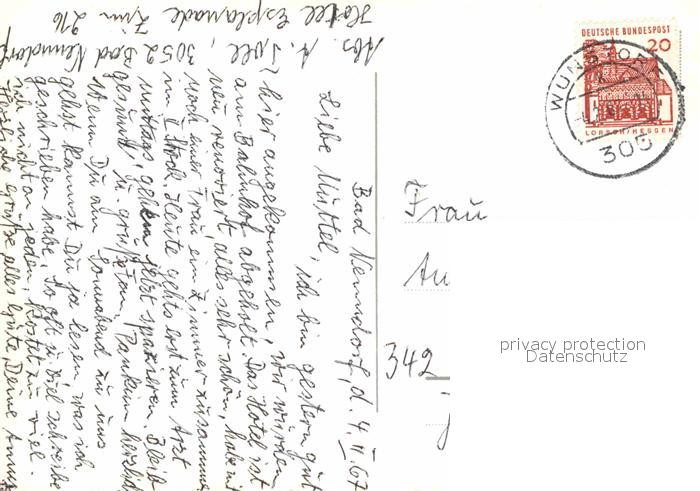 Abs. A. Jvll, 3052 Bad Nenndorf
Hotel Esplanade Zim 216
Bad Nenndorf, d. 4. II. 67
Liebe Muttel, ich bin gestern gut
hier angekommen, wir wurden
am Bahnhof abgeholt. Das Hotel ist
neu renoviert, alles sehr schön, habe mit
noch einer Frau ein Zimmer zusammen
im I Stock. Heute gehts erst zum Arzt
mittags gehen jetzt spazieren. Bleib
gesund, Danken herzlich
Wenn Du am Sonnabend zu uns
gehst kannst Du ja lesen was ich
geschrieben habe. So oft u. viel schreibe
ich nicht an jeden, kostet zu viel.
Herzliche Grüße alles Gute, Deine Anni
DEUTSCHE BUNDESPOST
20
LORSCH/HESSEN
WUNSTORF
305
Frau
342
privacy protection
Datenschutz